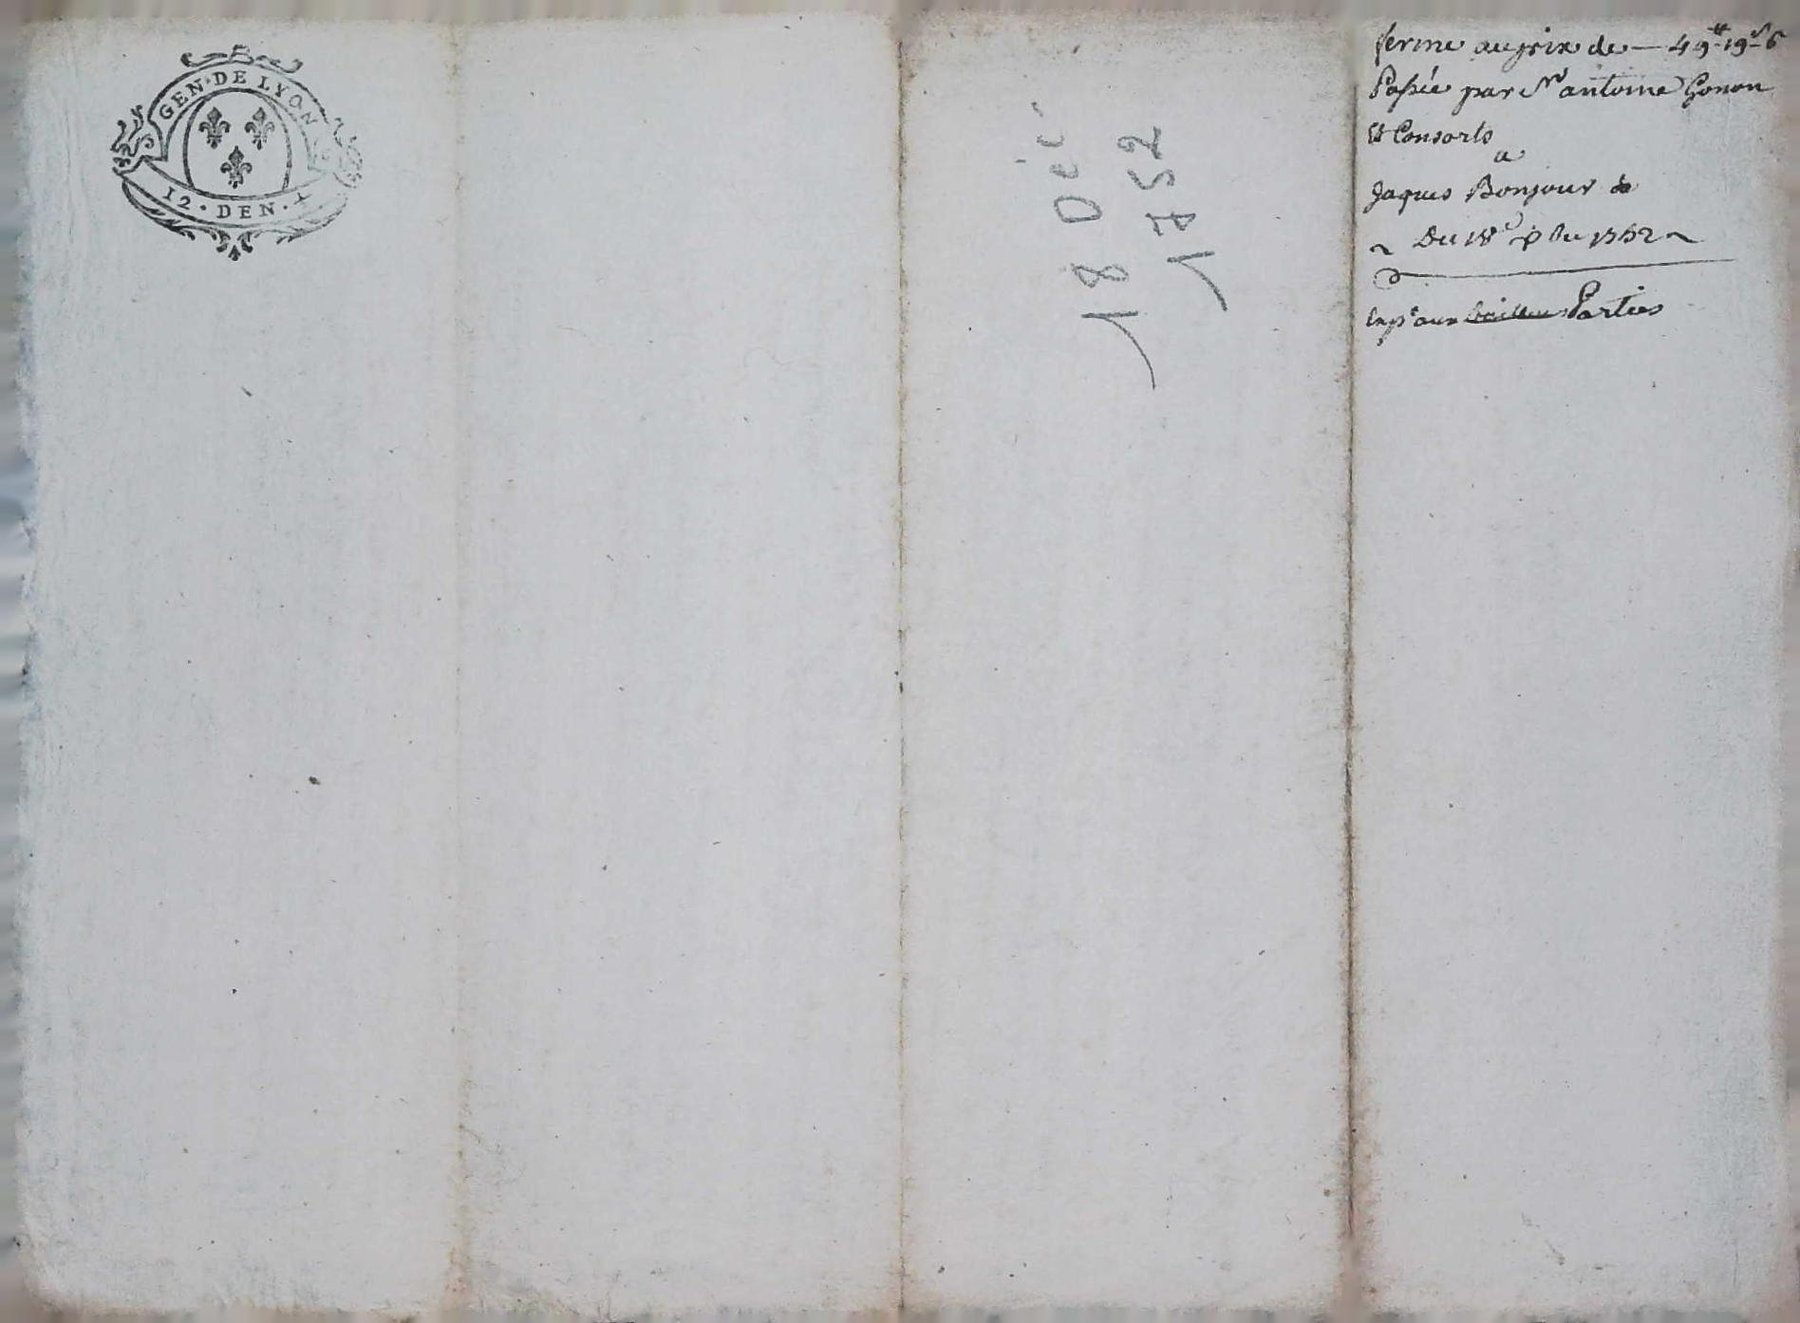 GEN·DE LYON
12·DEN·
18 Déc
1752
ferme au prix de — 49ᵗᵗ 19ˢ 6
Passée par Sʳ antoine Gonon
Et Consorts
a
Jaques Bonjour
Du 18ᵉ Xbre 1752
Exp aux Parties